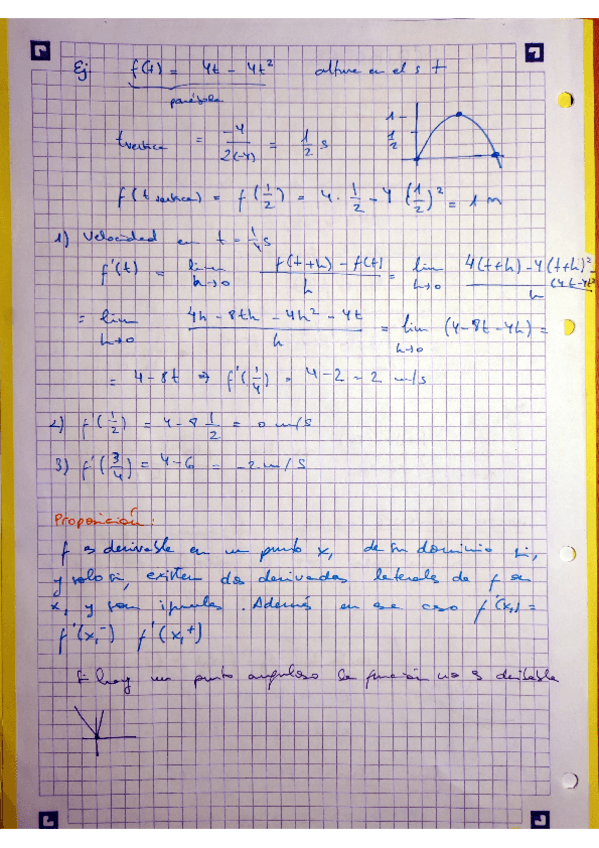 Ej f(t) = 4t - 4t² altura en el s t
parábola
t vertice = -4 / 2(-4) = 1/2 s
1
1/2
f(t vertice) = f(1/2) = 4 · 1/2 - 4 (1/2)² = 1 m
1) Velocidad en t = 1/4 s
f'(t) = lim h→0 f(t+h) - f(t) / h = lim h→0 4(t+h) - 4(t+h)² - (4t-4t²) / h
= lim h→0 4h - 8th - 4h² - 4t / h = lim h→0 (4 - 8t - 4h) =
= 4 - 8t ⇒ f'(1/4) = 4 - 2 = 2 m/s
2) f'(1/2) = 4 - 8 1/2 = 0 m/s
3) f'(3/4) = 4 - 6 = -2 m/s
Proposición:
f es derivable en un punto x₁ de su dominio si,
y solo si, existen dos derivadas laterales de f en
x₁ y son iguales. Además en ese caso f'(x₁) =
f'(x₁⁻) f'(x₁⁺)
Si hay un punto anguloso la función no es derivable